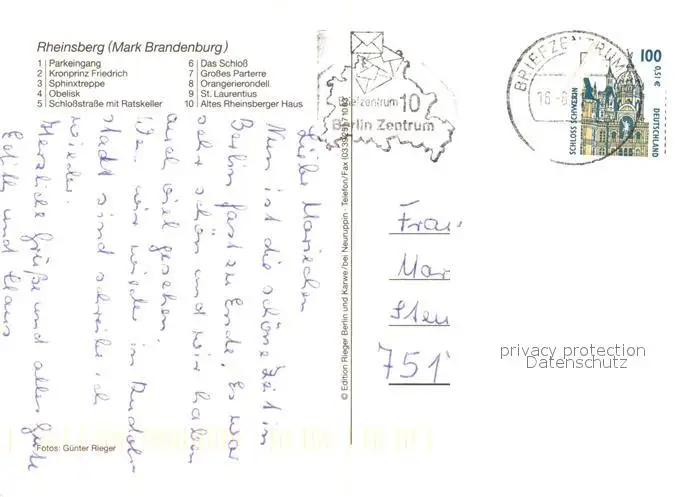 Rheinsberg (Mark Brandenburg)
1 Parkeingang
2 Kronprinz Friedrich
3 Sphinxtreppe
4 Obelisk
5 Schloßstraße mit Ratskeller
6 Das Schloß
7 Großes Parterre
8 Orangerierondell
9 St. Laurentius
10 Altes Rheinsberger Haus
Briefzentrum 10
Berlin Zentrum
BRIEFZENTRUM
16
100
0,51 €
SCHLOSS SCHWERIN
DEUTSCHLAND
Liebe Mariechen
Nun ist die schöne Zeit in
Berlin fast zu Ende. Es war
sehr schön und wir haben
auch viel gesehen.
wir wieder in
stadt sind schreibe ich
wieder.
Herzliche Grüße und alles Gute
Edith und Klaus
© Edition Rieger Berlin und Karwe/bei Neuruppin · Telefon/Fax
Frau
Mar
751
privacy protection
Datenschutz
Fotos: Günter Rieger